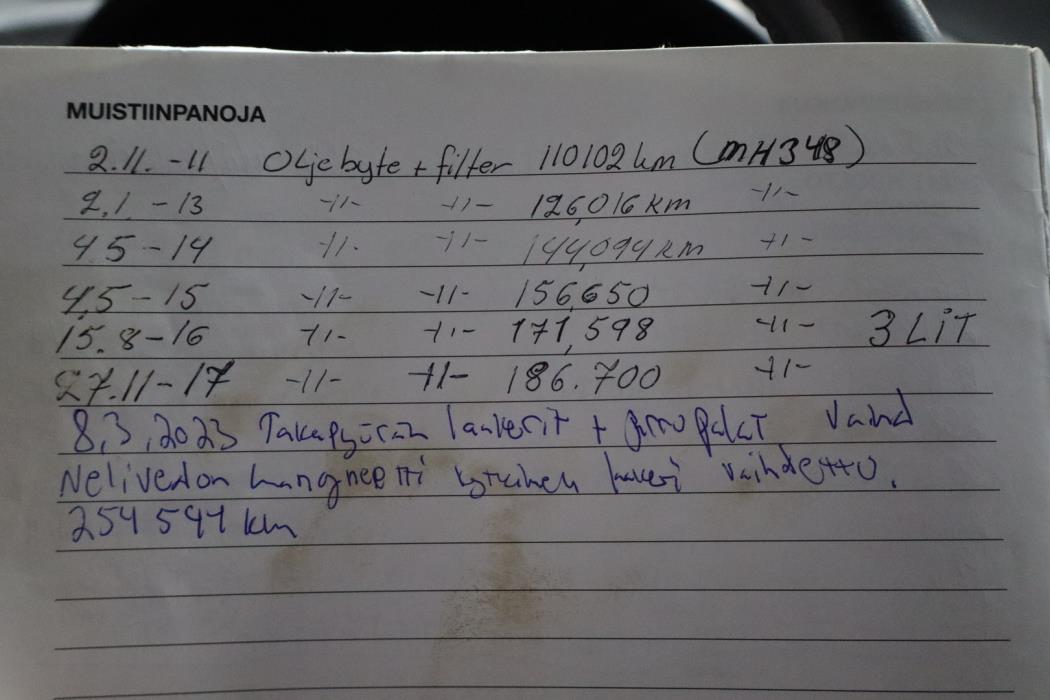 MUISTIINPANOJA
2.11.-11 Oljebyte + filter 110102 km (MH348)
2.1.-13 -11- -11- 126,016 km -11-
4.5-14 -11- -11- 144,094 km -11-
4,5-15 -11- -11- 156,650 -11-
15.8-16 -11- -11- 171,598 -11- 3 LiT
27.11-17 -11- -11- 186.700 -11-
8,3,2023 Takapyörän laakerit + jarrupalat Vaihd
Nelivedon mangneetti kytkimen laakeri vaihdettu.
254 541 km